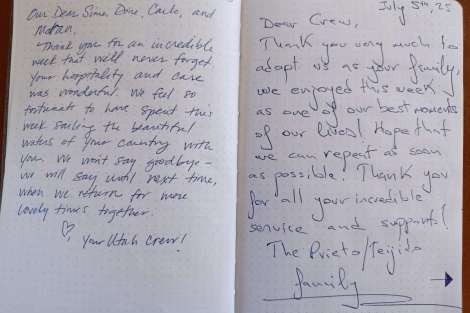 Our Dear Sime, Dine, Carlo, and
Matan,
Thank you for an incredible
week that we'll never forget.
Your hospitality and care
was wonderful. We feel so
fortunate to have spent this
week sailing the beautiful
waters of your country with
you. We won't say goodbye –
we will say until next time,
when we return for more
lovely times together.
♡
Your Utah Crew!
July 5th, 25
Dear Crew,
Thank you very much to
adopt us as your family,
we enjoyed this week
as one of our best moments
of our lives! Hope that
we can repeat as soon
as possible. Thank you
for all your incredible
service and supports!
The Prieto/Teijido
family